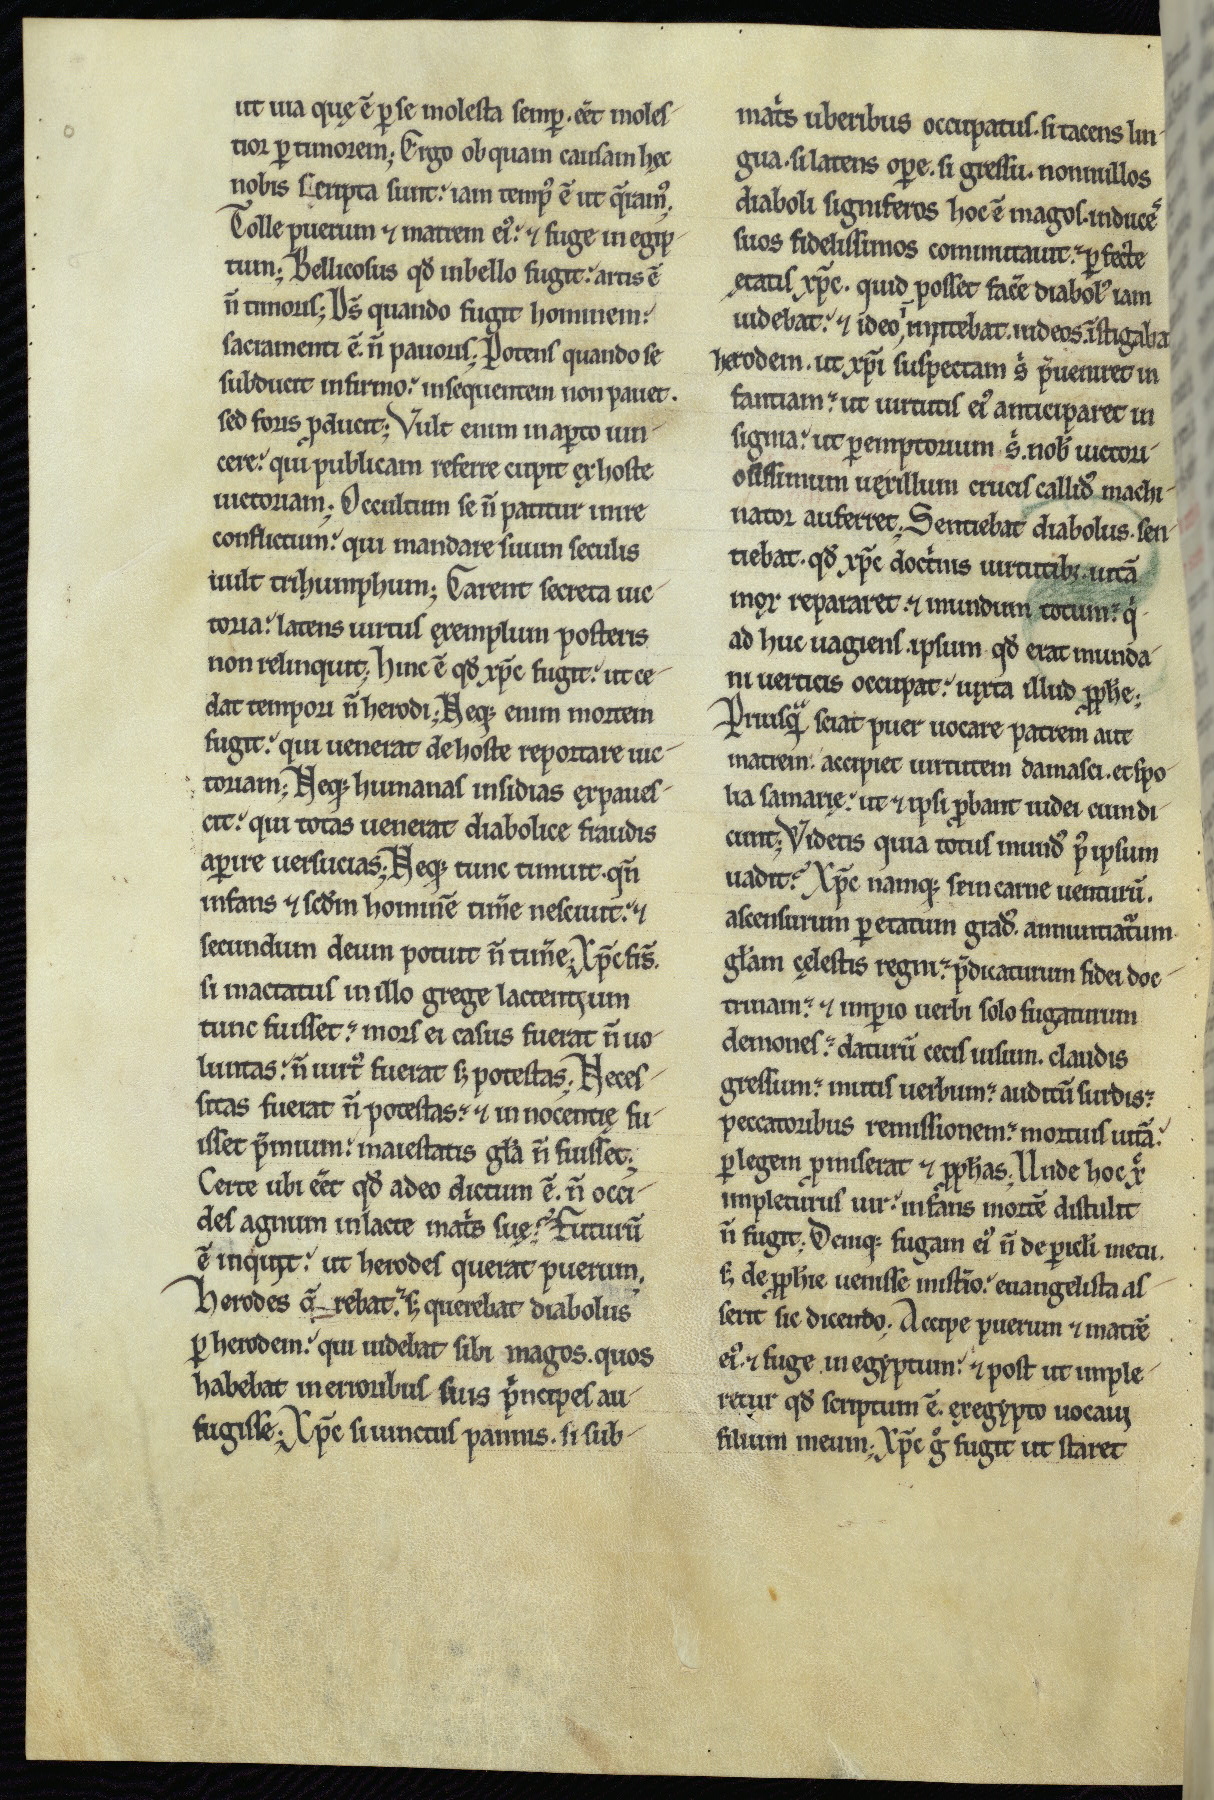 ut uia quę ē ꝑ se molesta semꝑ. eēt moles-
tior ꝑ timorem; Ergo ob quam causam hęc
nobis scripta sunt: iam tempꝰ ē ut q̄ramꝰ.
Tolle puerum ⁊ matrem eiꝰ: ⁊ fuge in egip-
tum; Bellicosus qđ in bello fugit: artis ē
n̄ timoris; D̄s quando fugit hominem:
sacramenti ē. n̄ pauoris; Potens quando se
subducit infirmo: insequentem non pauet.
sed foris ꝓducit; Vult enim in aꝑto uin-
cere: qui publicam referre cupit ex hoste
uictoriam; Occultum se n̄ patitur inire
conflictum: qui mandare suum seculis
uult trihumphum; Tarent secreta uic-
toria: latens uirtus exemplum posteris
non relinquit; Hinc ē qđ xp̄c fugit: ut ce-
dat tempori n̄ herodi; Neqꝫ enim mortem
fugit: qui uenerat de hoste reportare uic-
toriam; Neqꝫ humanas insidias expaues-
cit: qui totas uenerat diabolice fraudis
aꝑire uersucias; Neqꝫ tunc timuit. qn̄
infans ⁊ scđm hominē tim̄e nesciuit: ⁊
secundum deum potuit n̄ tim̄e; Xp̄c fr̄s.
si mactatus in illo grege lactentium
tunc fuisset: mors ei casus fuerat n̄ uo-
luntas: n̄ uirtꝰ fuerat sꝫ potestas; Neces-
sitas fuerat n̄ potestas: ⁊ innocentię fu-
isset p̄mium: maiestatis gl̄a n̄ fuisset;
Certe ubi eēt qđ adeo dictum ē. n̄ occi-
des agnum in lacte mat̄s suę: Futurū
ē inquit: ut herodes querat puerum;
Herodes q̄ rebat: sꝫ querebat diabolus
ꝑ herodem: qui uidebat sibi magos. quos
habebat in erroribus suis pⁱncipes au-
fugisse; Xp̄c si uinctus pannis. si sub-
matⁱs uberibus occupatus. si tacens lin-
gua. si latens oꝑe. si gressu. nonnullos
diaboli signiferos hoc ē magos. in ducē
suos fidelissimos commutauit: ꝑfecte
etatis xp̄c. quid posset fac̄e diabolꝰ iam
uidebat: ⁊ ideo mittebat iudeos. īstigaba
herodem. ut xp̄i suspectam sⁱ p̄ueniret in
fantiam: ut uirtutis eiꝰ anticiparet in
signia: ut ꝑemptorium sⁱ. nob uictori-
osissimum uexillum crucis callidꝰ machi-
nator auferret; Sentiebat diabolus. sen-
tiebat. qđ xp̄c doctⁱnis uirtutibꝫ. uitā
mox repararet. ⁊ mundum totum: qⁱ
ad huc uagiens. ipsum qđ erat munda-
ni uerticis occupat: iuxta illud ꝓphe;
Priusqᵃ sciat puer uocare patrem aut
matrem: accipiet uirtutem damasci. et spo
lia samarię: ut ⁊ ipsi ꝓbant iudei cum di
cunt; Videtis quia totus mundꝰ pꝰ ipsum
uadit: Xp̄c namqꝫ se in carne uenturū.
ascensurum ꝑ etatum gradꝰ. annuntiatᵘrum
gl̄am cęlestis regni: p̄dicaturum fidei doc-
trinam: ⁊ imꝑio uerbi solo fugaturum
demones: daturū cecis uisum. claudis
gressum: mutis uerbum: auditū surdis:
peccatoribus remissionem: mortuis uitā:
ꝑ legem ꝓmiserat ⁊ ꝓphas; Unde hoc xⁱ
impleturus uir: infans mortē distulit
n̄ fugit; Deniqꝫ fugam eiꝰ n̄ de ꝑicl̄i metu.
sꝫ de ꝓphie uenisse mist̄io: euangelista as-
serit sic dicendo. Accipe puerum ⁊ matrē
eiꝰ. ⁊ fuge in egyptum: ⁊ post ut imple-
retur qđ scriptum ē. ex egypto uocaui
filium meum; Xp̄c gͦ fugit ut staret